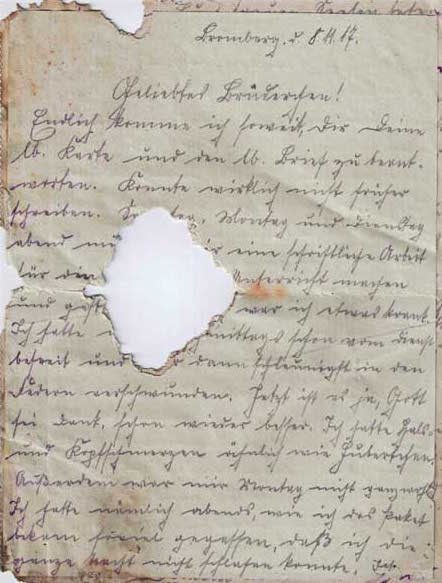 Bromberg, d. 8.11.17.
Geliebtes Brüderchen!
Endlich komme ich soweit, Dir Deine
lb. Karte und den lb. Brief zu beant-
worten. Konnte wirklich nicht früher
schreiben. Montag und Dienstag
abend eine schriftliche Arbeit
für Unterricht machen
und war ich etwas krank.
Ich hatte schon vom Dienst
befreit und dann schleunigst in den
Federn verschwunden. Jetzt ist es ja, Gott
sei Dank, schon wieder besser. Ich hatte Hals-
und Kopfschmerzen ähnlich wie
Außerdem war mir Montag nicht ganz wohl
Ich hatte nämlich abends, wie ich das Paket
bekam soviel gegessen, daß ich die
ganze Nacht nicht schlafen konnte.